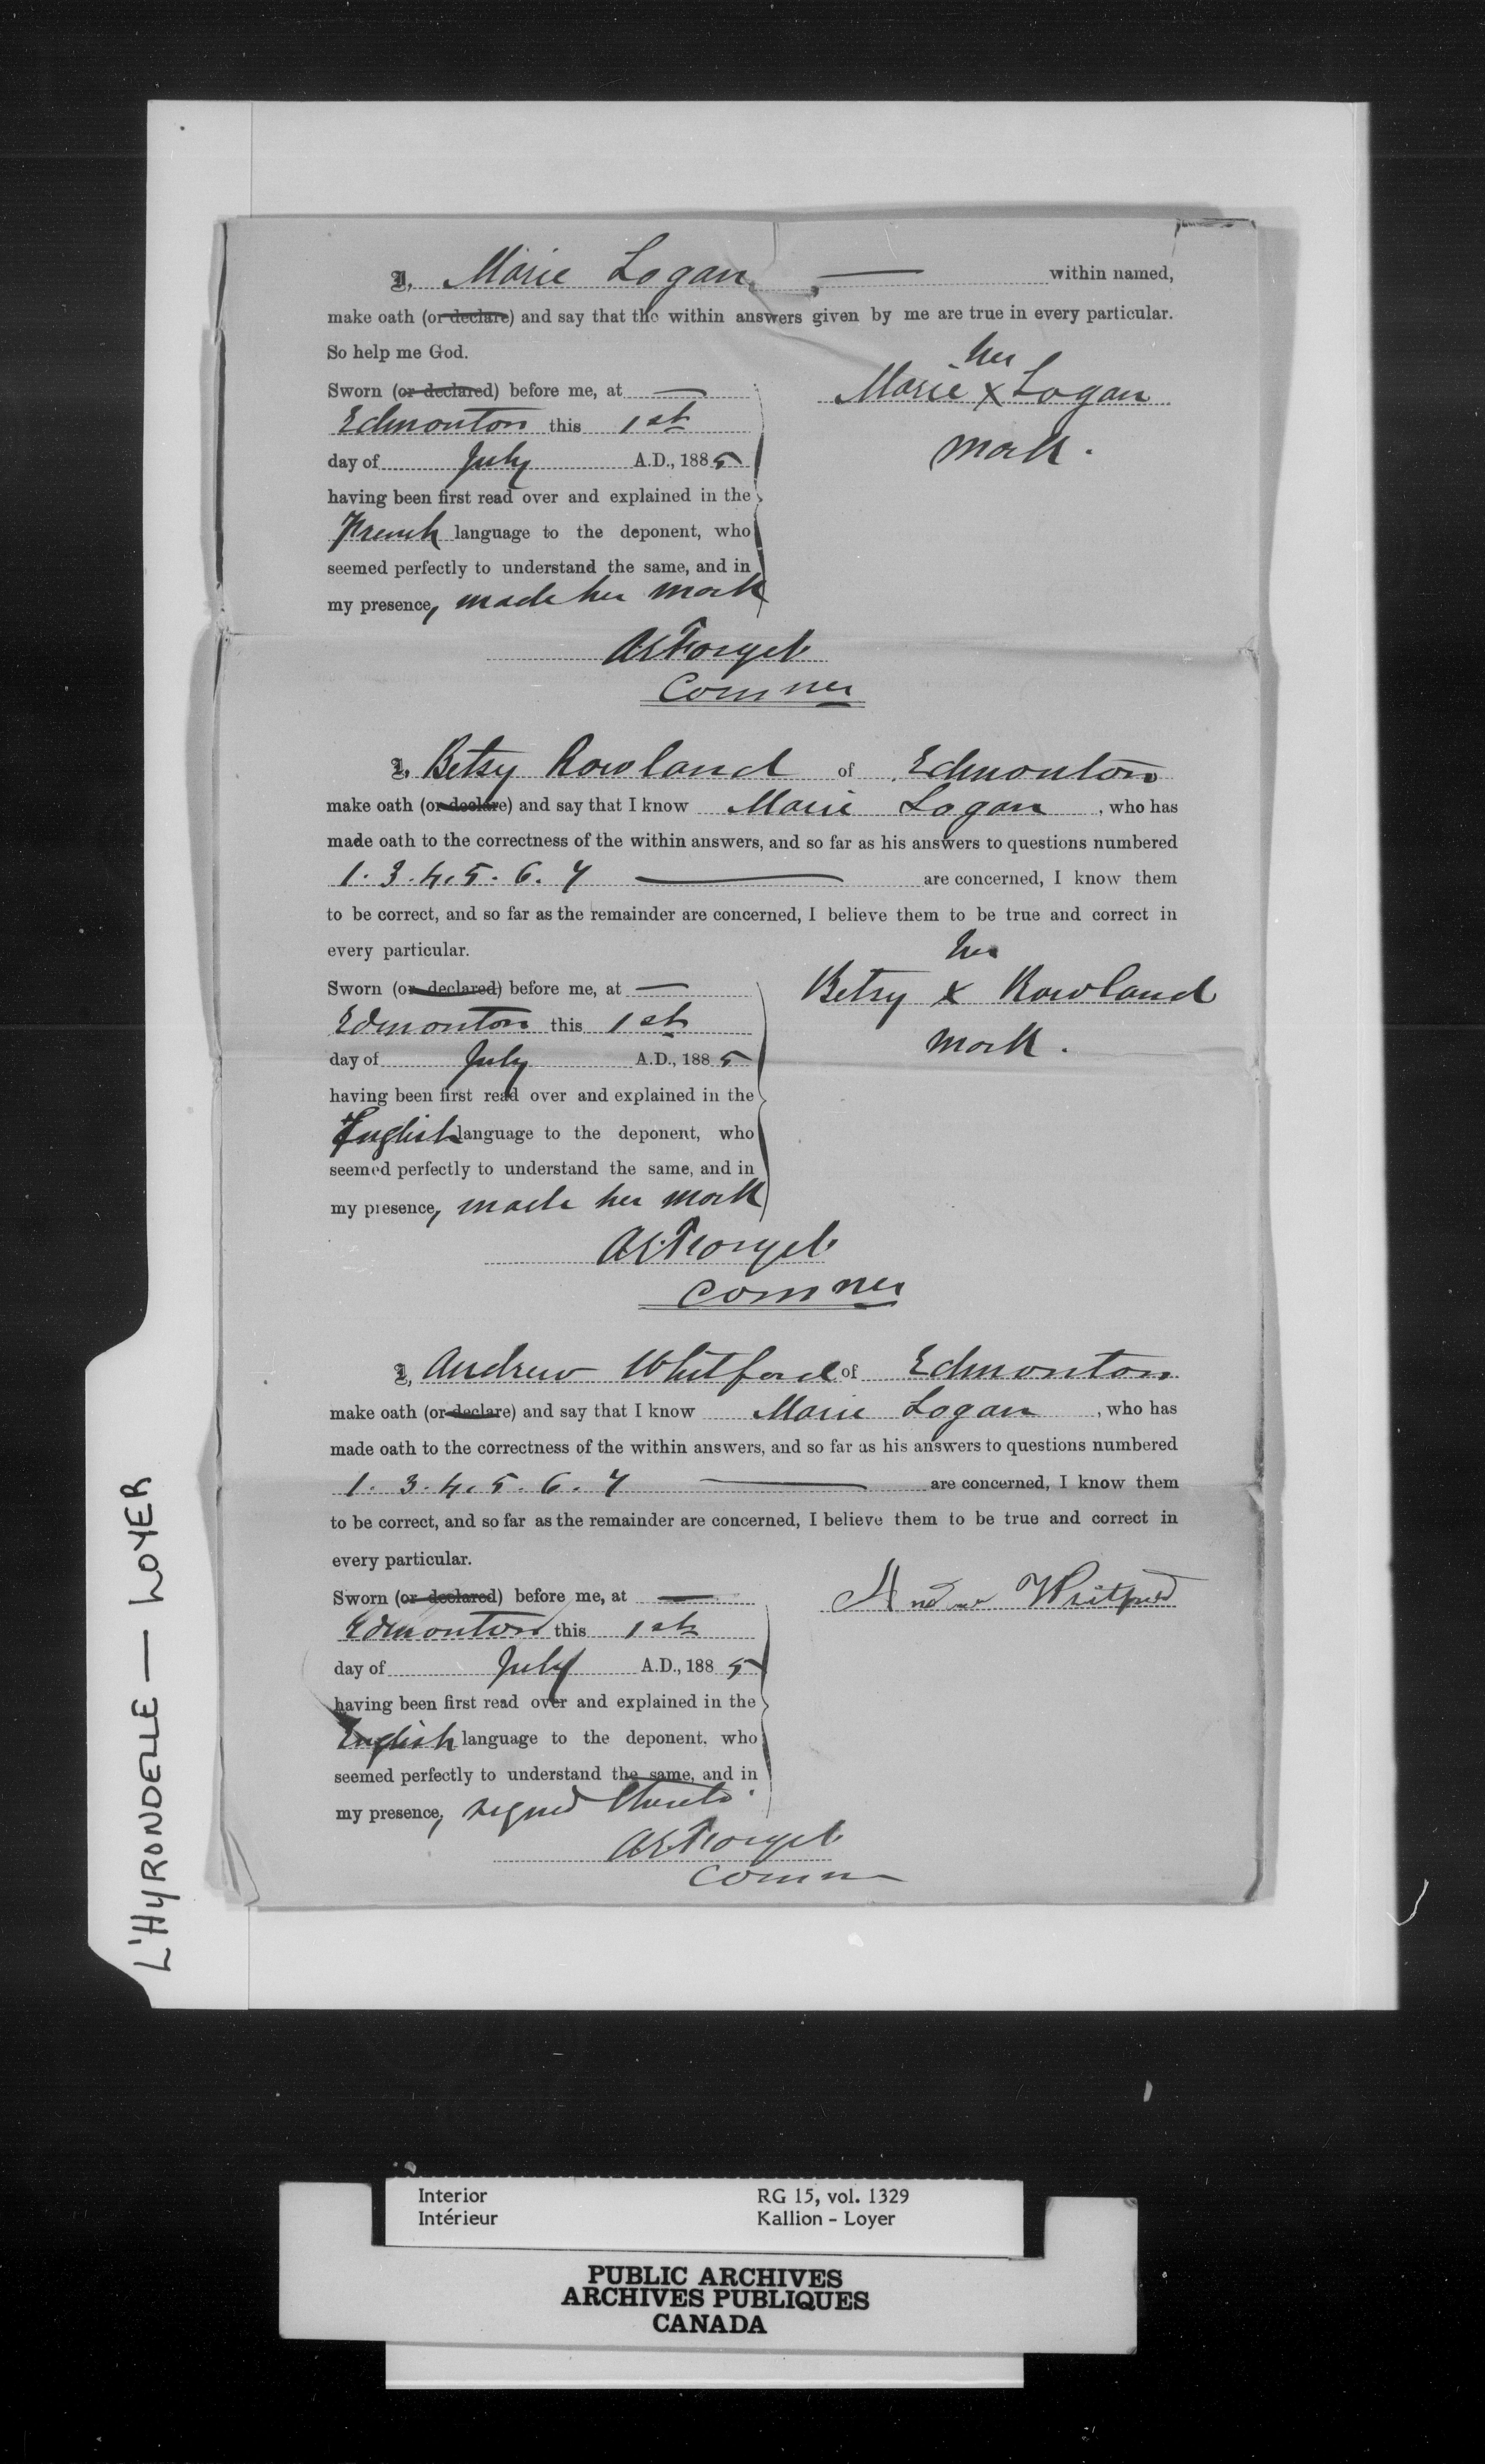 I, Marie Logan, — within named,
make oath (or declare) and say that the within answers given by me are true in every particular.
So help me God.
her
Sworn (or declared) before me, at —
Marie x Logan
Edmonton this 1st
mark.
day of July A.D., 1885
having been first read over and explained in the
French language to the deponent, who
seemed perfectly to understand the same, and in
my presence, made her mark
AE Forget
Commer
I, Betsy Rowland of Edmonton
make oath (or declare) and say that I know Marie Logan, who has
made oath to the correctness of the within answers, and so far as his answers to questions numbered
1. 3. 4. 5. 6. 7 — are concerned, I know them
to be correct, and so far as the remainder are concerned, I believe them to be true and correct in
every particular.
her
Sworn (or declared) before me, at —
Betsy x Rowland
Edmonton this 1st
mark.
day of July A.D., 1885
having been first read over and explained in the
English language to the deponent, who
seemed perfectly to understand the same, and in
my presence, made her mark
AE Forget
Commer
I, Andrew Whitford of Edmonton
make oath (or declare) and say that I know Marie Logan, who has
made oath to the correctness of the within answers, and so far as his answers to questions numbered
1. 3. 4. 5. 6. 7 — are concerned, I know them
to be correct, and so far as the remainder are concerned, I believe them to be true and correct in
every particular.
Sworn (or declared) before me, at —
Andrew Whitford
Edmonton this 1st
day of July A.D., 1885
having been first read over and explained in the
English language to the deponent, who
seemed perfectly to understand the same, and in
my presence, signed thereto.
AE Forget
Comm
L'HYRONDELLE — LOYER
Interior RG 15, vol. 1329
Intérieur Kallion - Loyer
PUBLIC ARCHIVES
ARCHIVES PUBLIQUES
CANADA